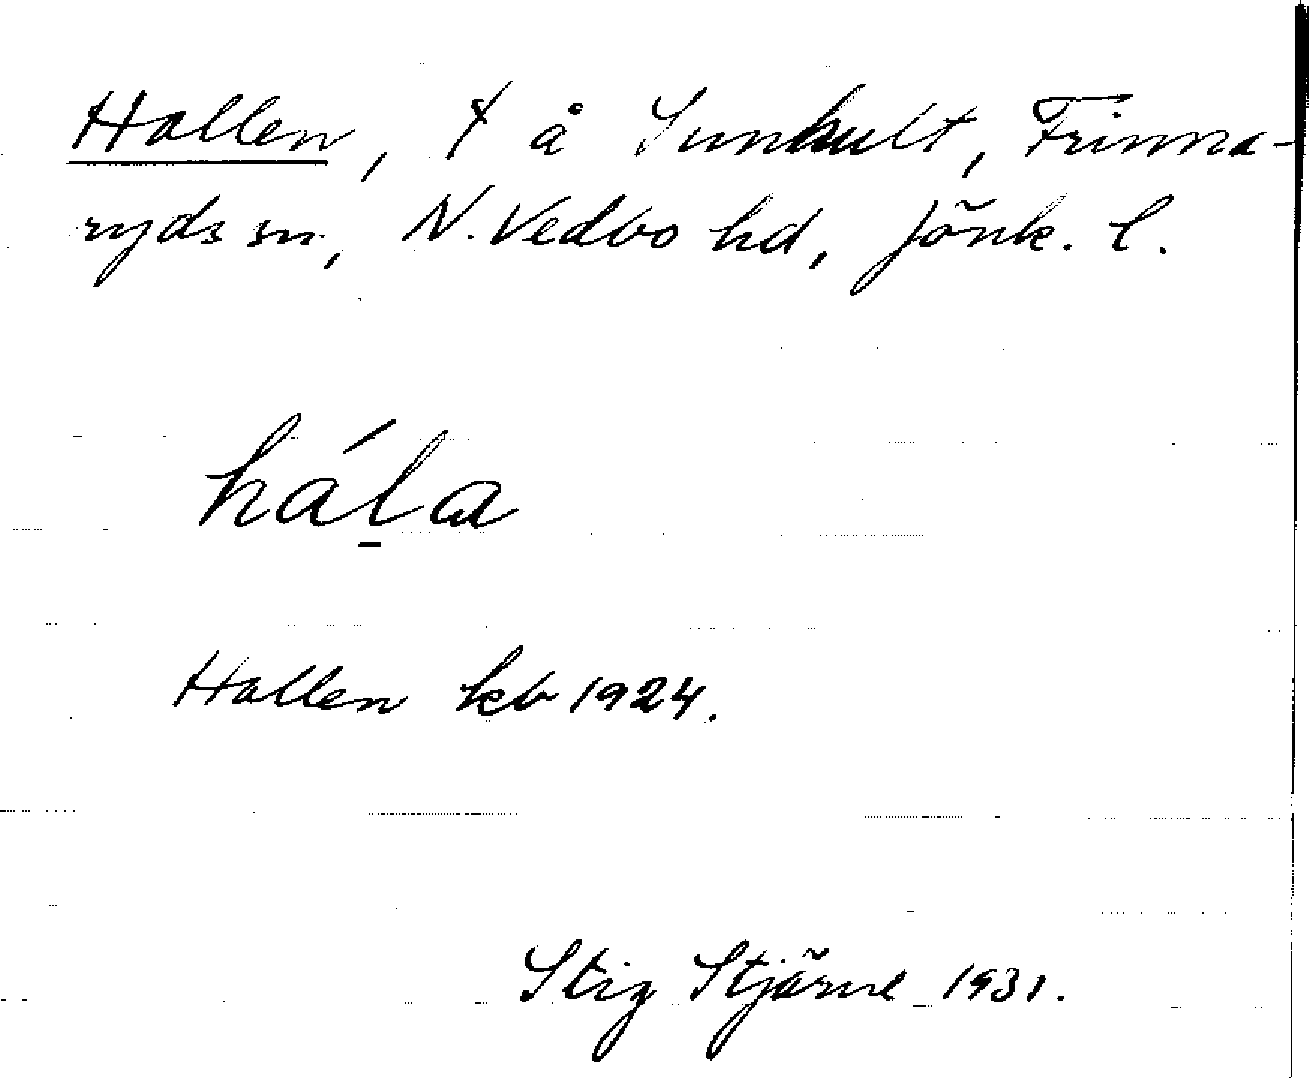 Hallen, † å Sunhult, Frinna-
ryds sn, N. Vedbo hd, Jönk. l.
háḻa
Hallen kb 1924.
Stig Stjärne 1931.